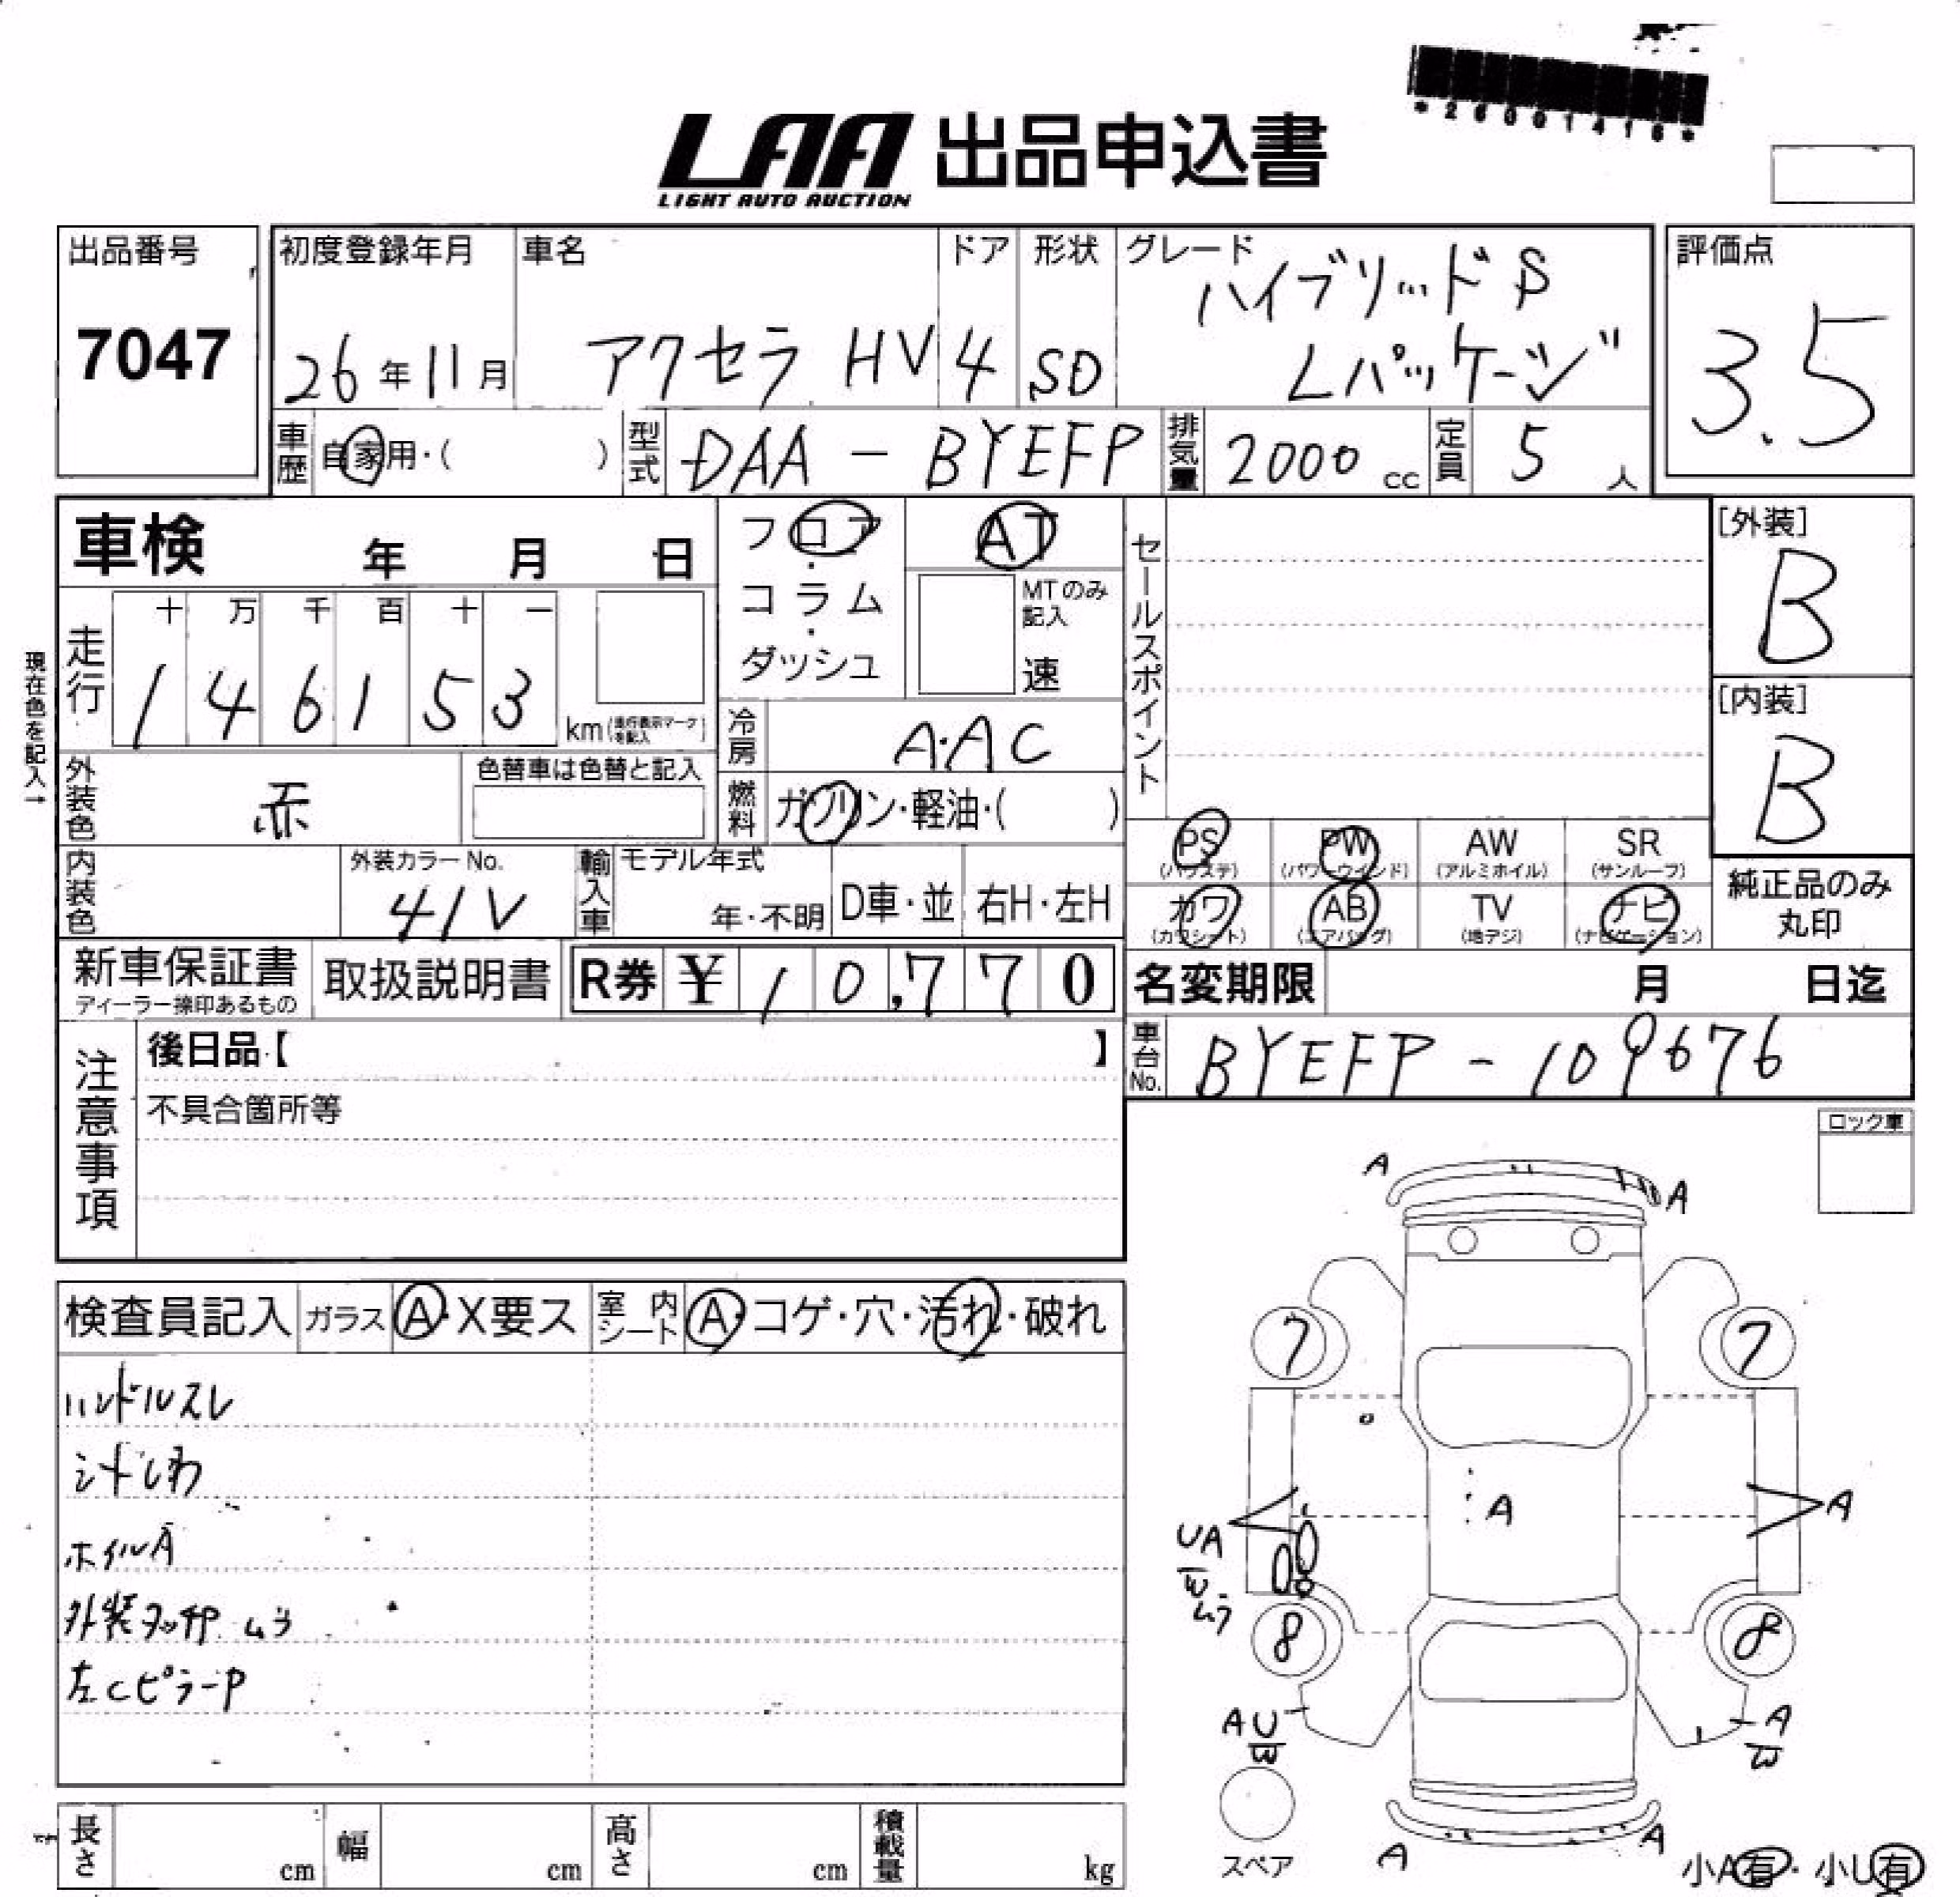 *26001416*
LAA 出品申込書
LIGHT AUTO AUCTION
出品番号
7047
初度登録年月
26年11月
車名
アクセラ HV
ドア
4
形状
SD
グレード
ハイブリッドS
Lパッケージ
評価点
3.5
車歴
自家用・( )
型式
DAA - BYEFP
排気量
2000 cc
定員
5 人
車検 年 月 日
フロア・コラム・ダッシュ
AT
MTのみ記入
速
セールスポイント
[外装]
B
[内装]
B
現在色を記入→
走行
十 万 千 百 十 一
1 4 6 1 5 3
km(走行表示マークを記入)
冷房
A.AC
外装色
赤
色替車は色替と記入
燃料
ガソリン・軽油・( )
内装色
外装カラーNo.
41V
輸入車
モデル年式
年・不明
D車・並
右H・左H
PS
(パワステ)
PW
(パワーウインド)
AW
(アルミホイル)
SR
(サンルーフ)
カワ
(カワシート)
AB
(エアバッグ)
TV
(地デジ)
ナビ
(ナビゲーション)
純正品のみ
丸印
新車保証書
ディーラー捺印あるもの
取扱説明書
R券 ¥ 10,770
名変期限 月 日迄
車台No.
BYEFP - 109676
注意事項
後日品【 】
不具合箇所等
ロック車
検査員記入
ガラス
A・X要ス
室内シート
A・コゲ・穴・汚れ・破れ
ハンドルスレ
シートしわ
ホイルA
外装タッチP ムラ
左CピラーP
A
A
7
7
A
A
UA
W
ムラ
8
8
AU
W
A
W
スペア
A
A
小A有・小U有
長さ cm
幅 cm
高さ cm
積載量 kg